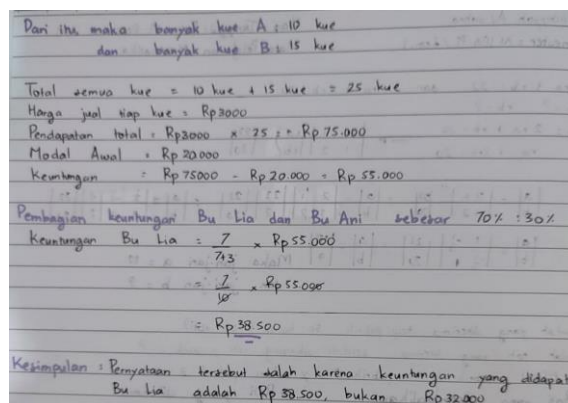 Dari itu maka banyak kue A : 10 kue
dan banyak kue B : 15 kue
Total semua kue = 10 kue + 15 kue = 25 kue
Harga jual tiap kue = Rp3000
Pendapatan total = Rp3000 × 25 = Rp 75.000
Modal Awal = Rp 20.000
Keuntungan = Rp 75000 - Rp 20.000 = Rp 55.000
Pembagian keuntungan Bu Lia dan Bu Ani sebesar 70% : 30%
Keuntungan Bu Lia = 7/7+3 × Rp 55.000
= 7/10 × Rp 55.000
= Rp 38.500
Kesimpulan : Pernyataan tersebut salah karena keuntungan yang didapat
Bu Lia adalah Rp 38.500, bukan Rp 32.000